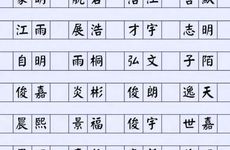 江雨 展浩 才宇 志明
自明 雨桐 弘文 子陌
俊嘉 炎彬 俊朗 逸天
晨熙 景福 俊宇 世嘉